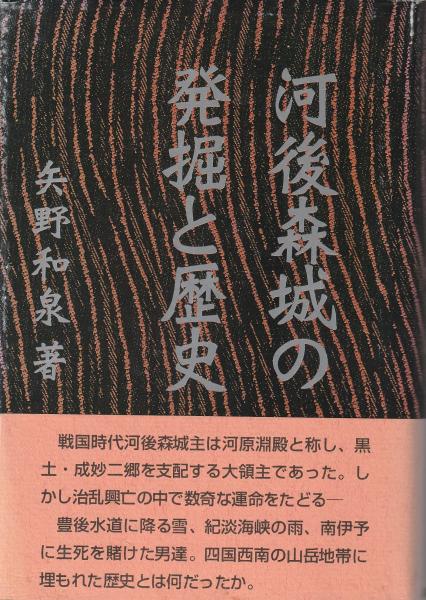 河後森城の
発掘と歴史
矢野和泉著
戦国時代河後森城主は河原淵殿と称し、黒
土・成妙二郷を支配する大領主であった。し
かし治乱興亡の中で数奇な運命をたどる─
豊後水道に降る雪、紀淡海峡の雨、南伊予
に生死を賭けた男達。四国西南の山岳地帯に
埋もれた歴史とは何だったか。